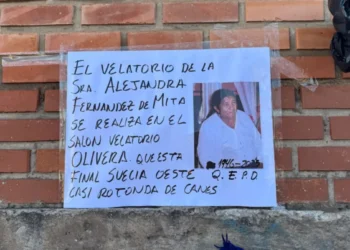 EL VELATORIO DE LA
SRA. ALEJANDRA
FERNANDEZ DE MITA
SE REALIZA EN EL
SALON VELATORIO
OLIVERA. QUEESTA
FINAL SUECIA OESTE Q.E.P.D
CASI ROTONDA DE CANES